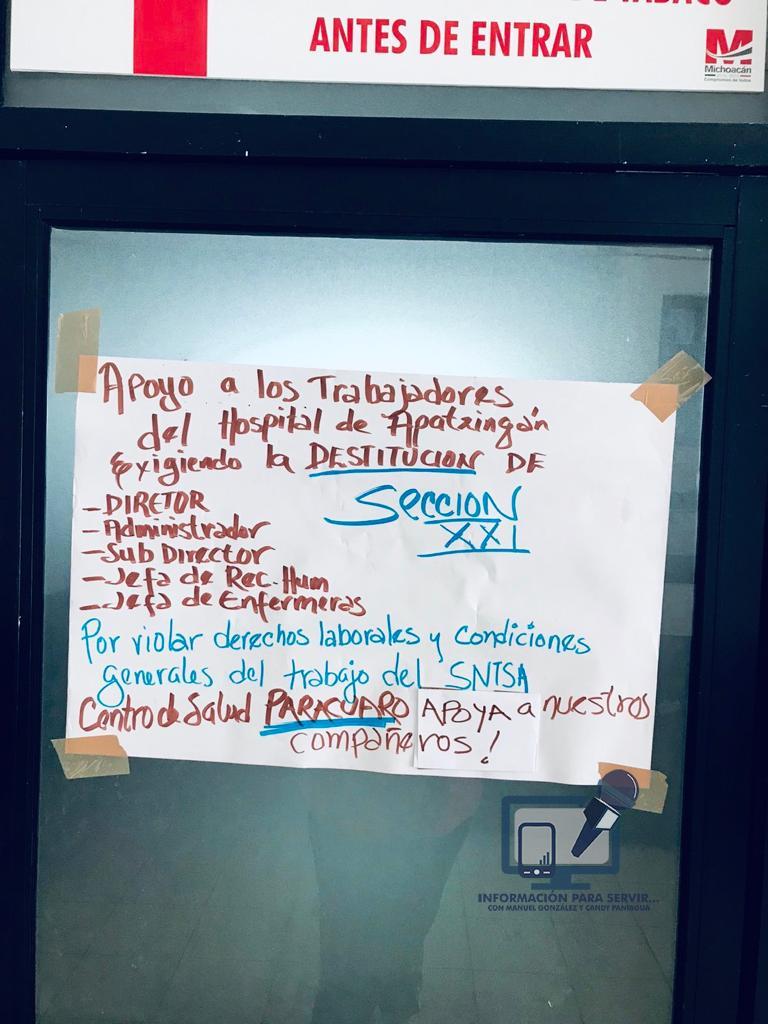 TABACO
ANTES DE ENTRAR
Michoacán
Apoyo a los Trabajadores
del Hospital de Apatzingán
Exigiendo la DESTITUCION DE
SECCION
XXI
-DIRETOR
-Administrador
-Sub Director
-Jefa de Rec. Hum
-Jefa de Enfermeras
Por violar derechos laborales y condiciones
generales del trabajo del SNTSA
Centro de Salud PARACUARO APOYA a nuestros
compañeros!
INFORMACIÓN PARA SERVIR...
CON MANUEL GONZÁLEZ Y CANDY PANIAGUA